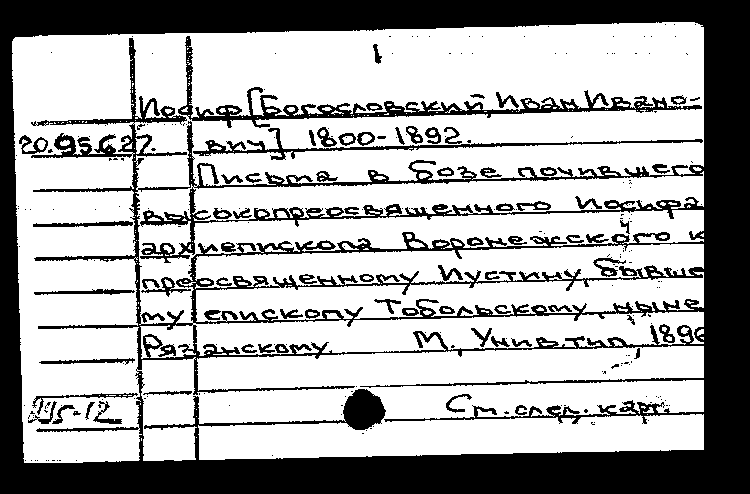 1
Иосиф [Богословский, Иван Ивано-
20.95.627. вич], 1800-1892.
Письма в бозе почившего
высокопреосвященного Иосифа
архиепископа Воронежского к
преосвященному Иустину, бывше
му епископу Тобольскому, ныне
Рязанскому. М., Унив. тип., 1896
295-12 См. след. карт.